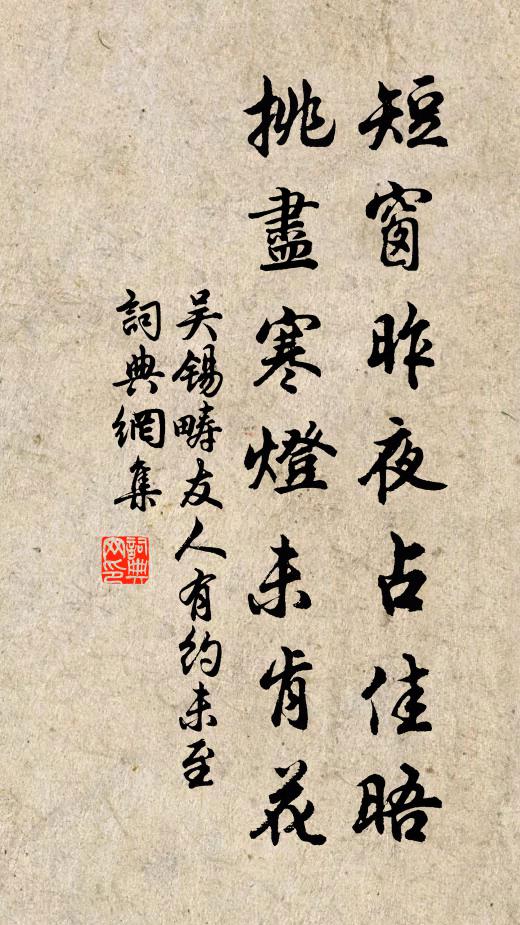 短窗昨夜占佳晤
挑盡寒燈未肯花
吴錫疇友人有約未至
詞典網集
詞典网印